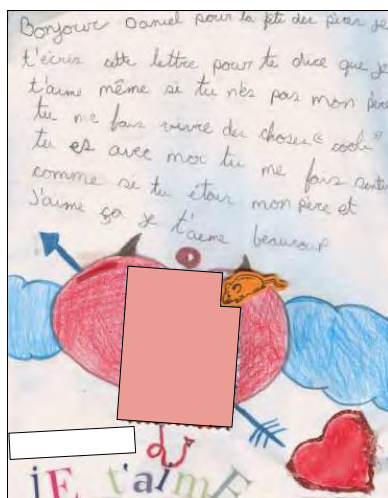 Bonjour Daniel pour la fête des pères je
t'écris cette lettre pour te dire que je
t'aime même si tu n'es pas mon père
tu me fais vivre des choses « cool »
tu es avec moi tu me fais sentir
comme si tu étais mon père et
j'aime ça je t'aime beaucoup
jE t'aimE